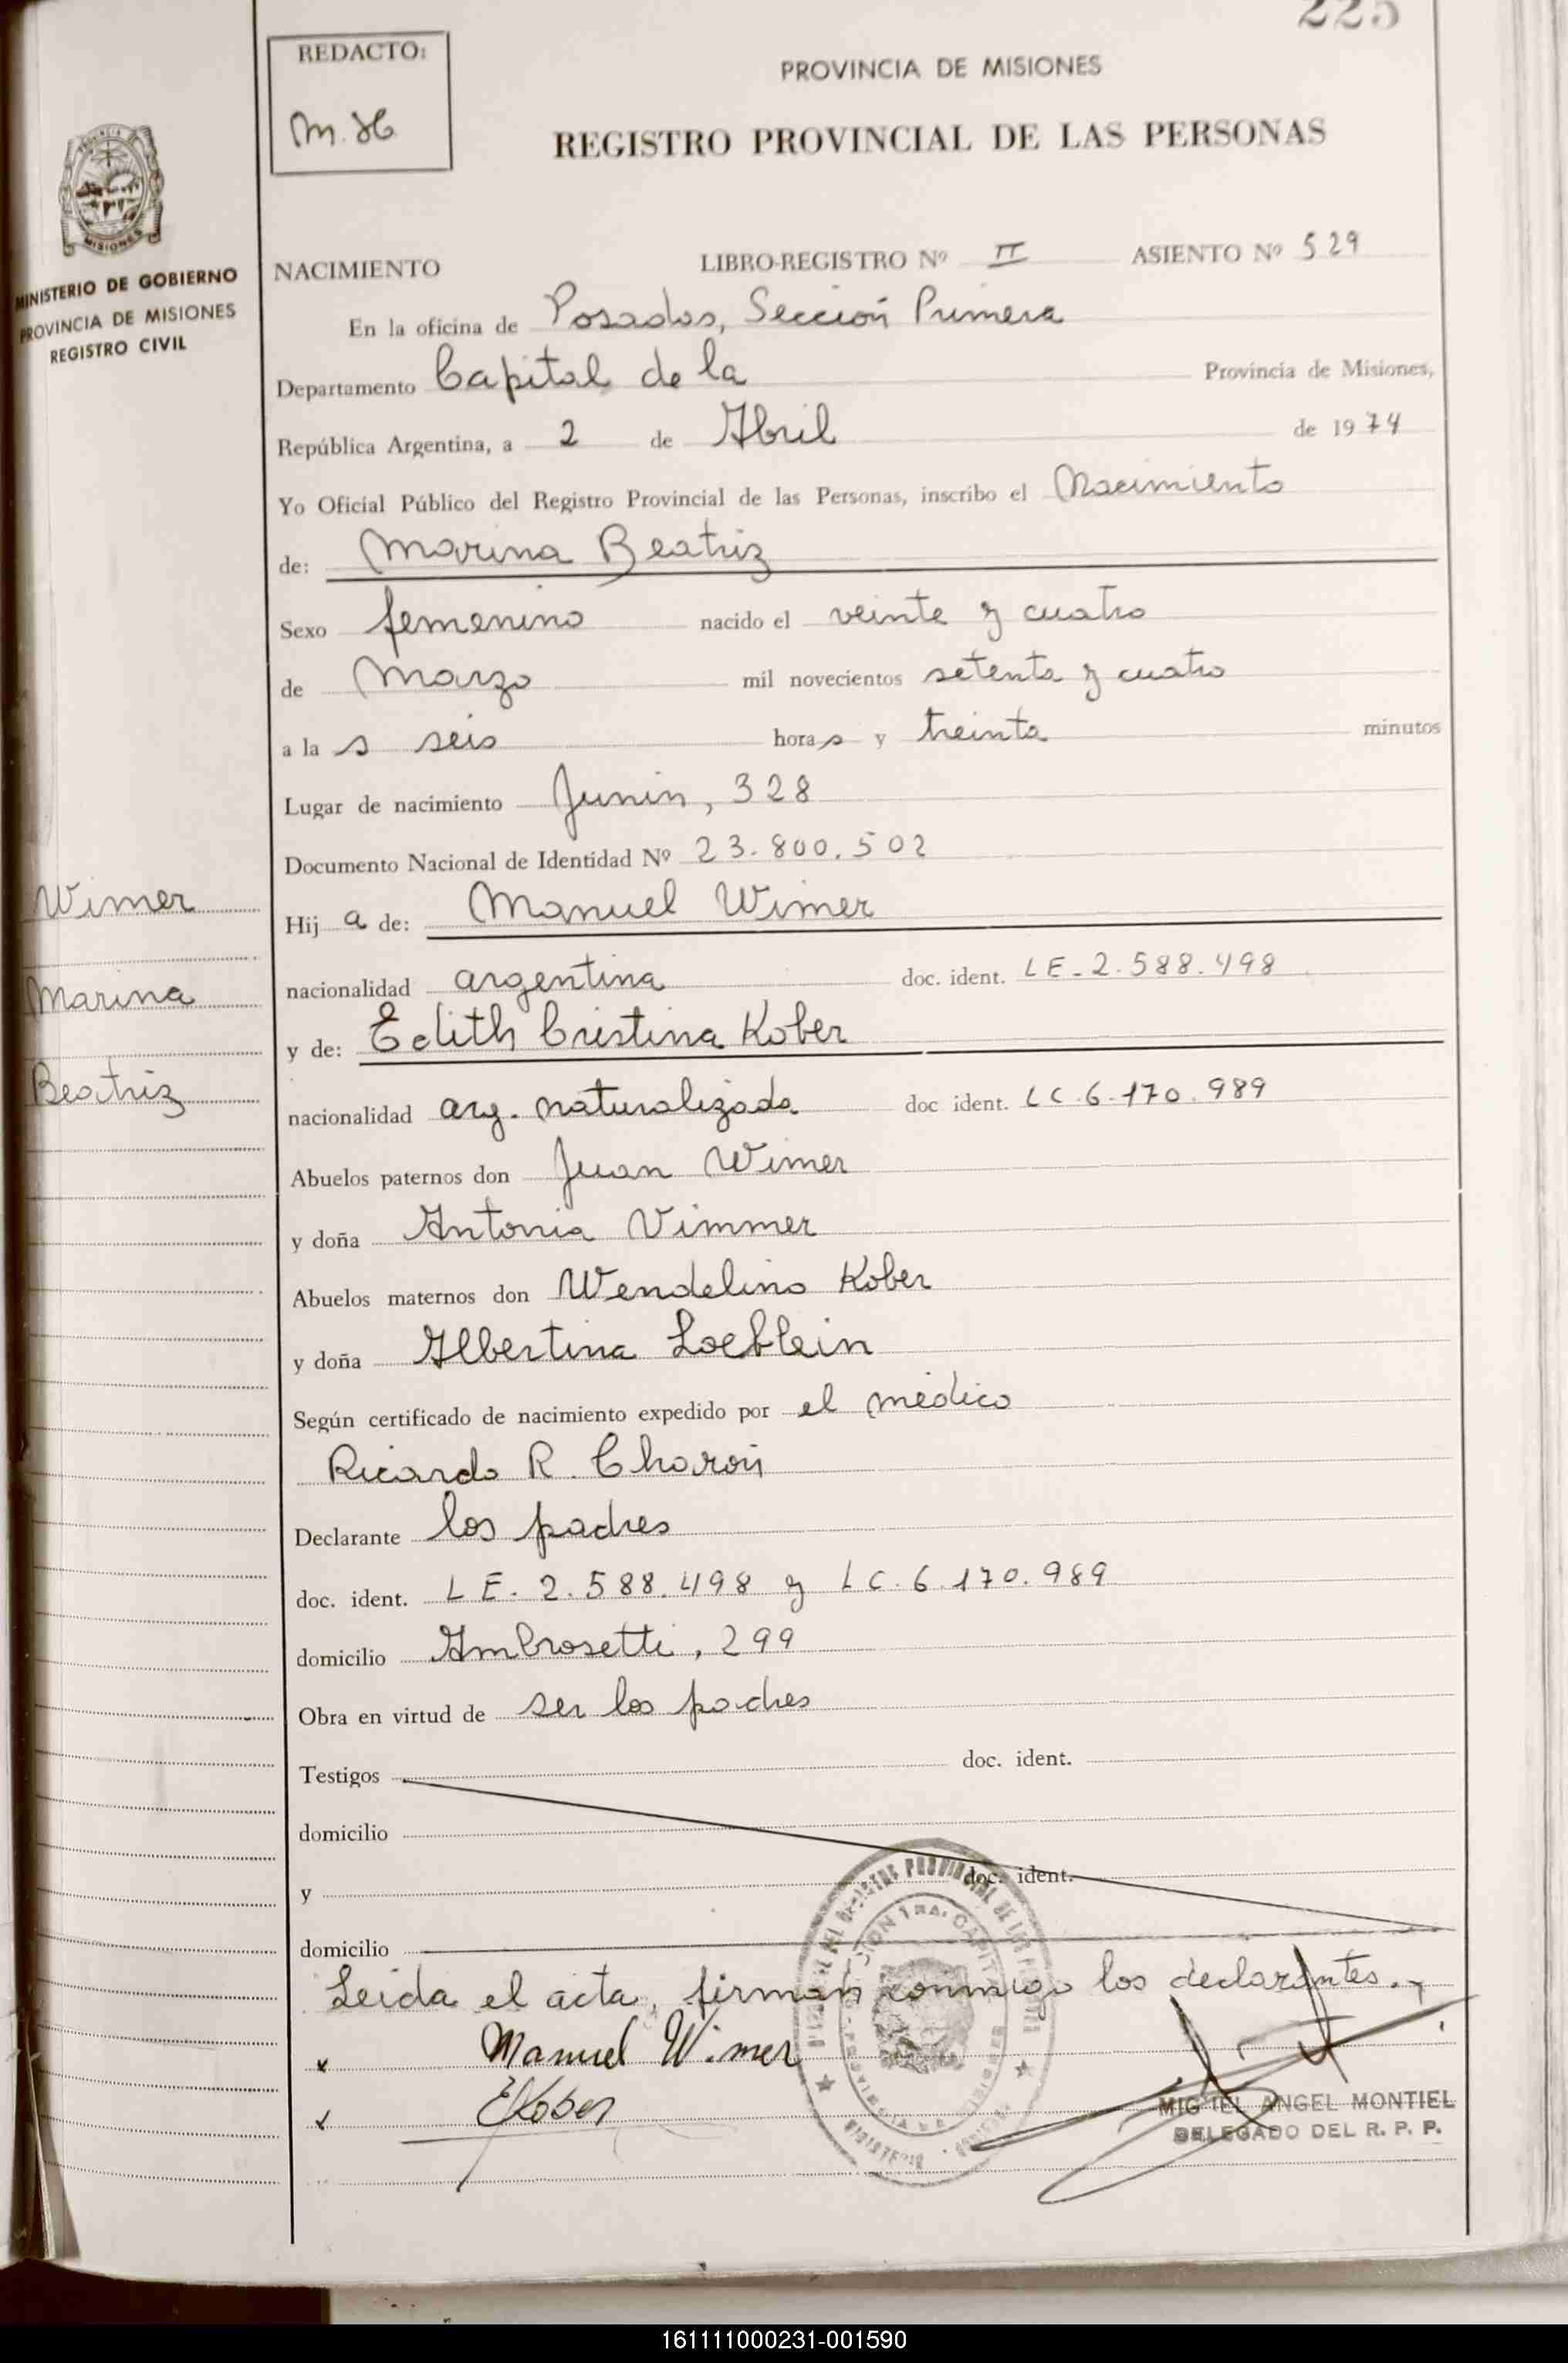 225
REDACTO:
PROVINCIA DE MISIONES
REGISTRO PROVINCIAL DE LAS PERSONAS
MISIONES
MINISTERIO DE GOBIERNO
PROVINCIA DE MISIONES
REGISTRO CIVIL
NACIMIENTO LIBRO-REGISTRO Nº II ASIENTO Nº 529
En la oficina de Posadas, Sección Primera
Departamento Capital de la Provincia de Misiones,
República Argentina, a 2 de Abril de 1974
Yo Oficial Público del Registro Provincial de las Personas, inscribo el Nacimiento
de: Marina Beatriz
Sexo femenino nacido el veinte y cuatro
de Marzo mil novecientos setenta y cuatro
a la s seis hora s y treinta minutos
Lugar de nacimiento Junin, 328
Documento Nacional de Identidad Nº 23.800.502
Wimer
Hij a de: Manuel Wimer
nacionalidad argentina doc. ident. LE-2.588.498
Marina
y de: Edith Cristina Kober
Beatriz
nacionalidad arg. naturalizada doc ident. LC.6.170.989
Abuelos paternos don Juan Wimer
y doña Antonia Vimmer
Abuelos maternos don Wendelino Kober
y doña Albertina Loeblein
Según certificado de nacimiento expedido por el médico
Ricardo R.
Declarante los padres
doc. ident. LE-2.588.498 y LC.6.170.989
domicilio Ambrosetti, 299
Obra en virtud de ser los padres
Testigos doc. ident.
domicilio
y doc. ident.
domicilio
Leida el acta, firman conmigo los declarantes.-
Manuel Wimer
EKober
MIGUEL ANGEL MONTIEL
DELEGADO DEL R. P. P.
161111000231-001590